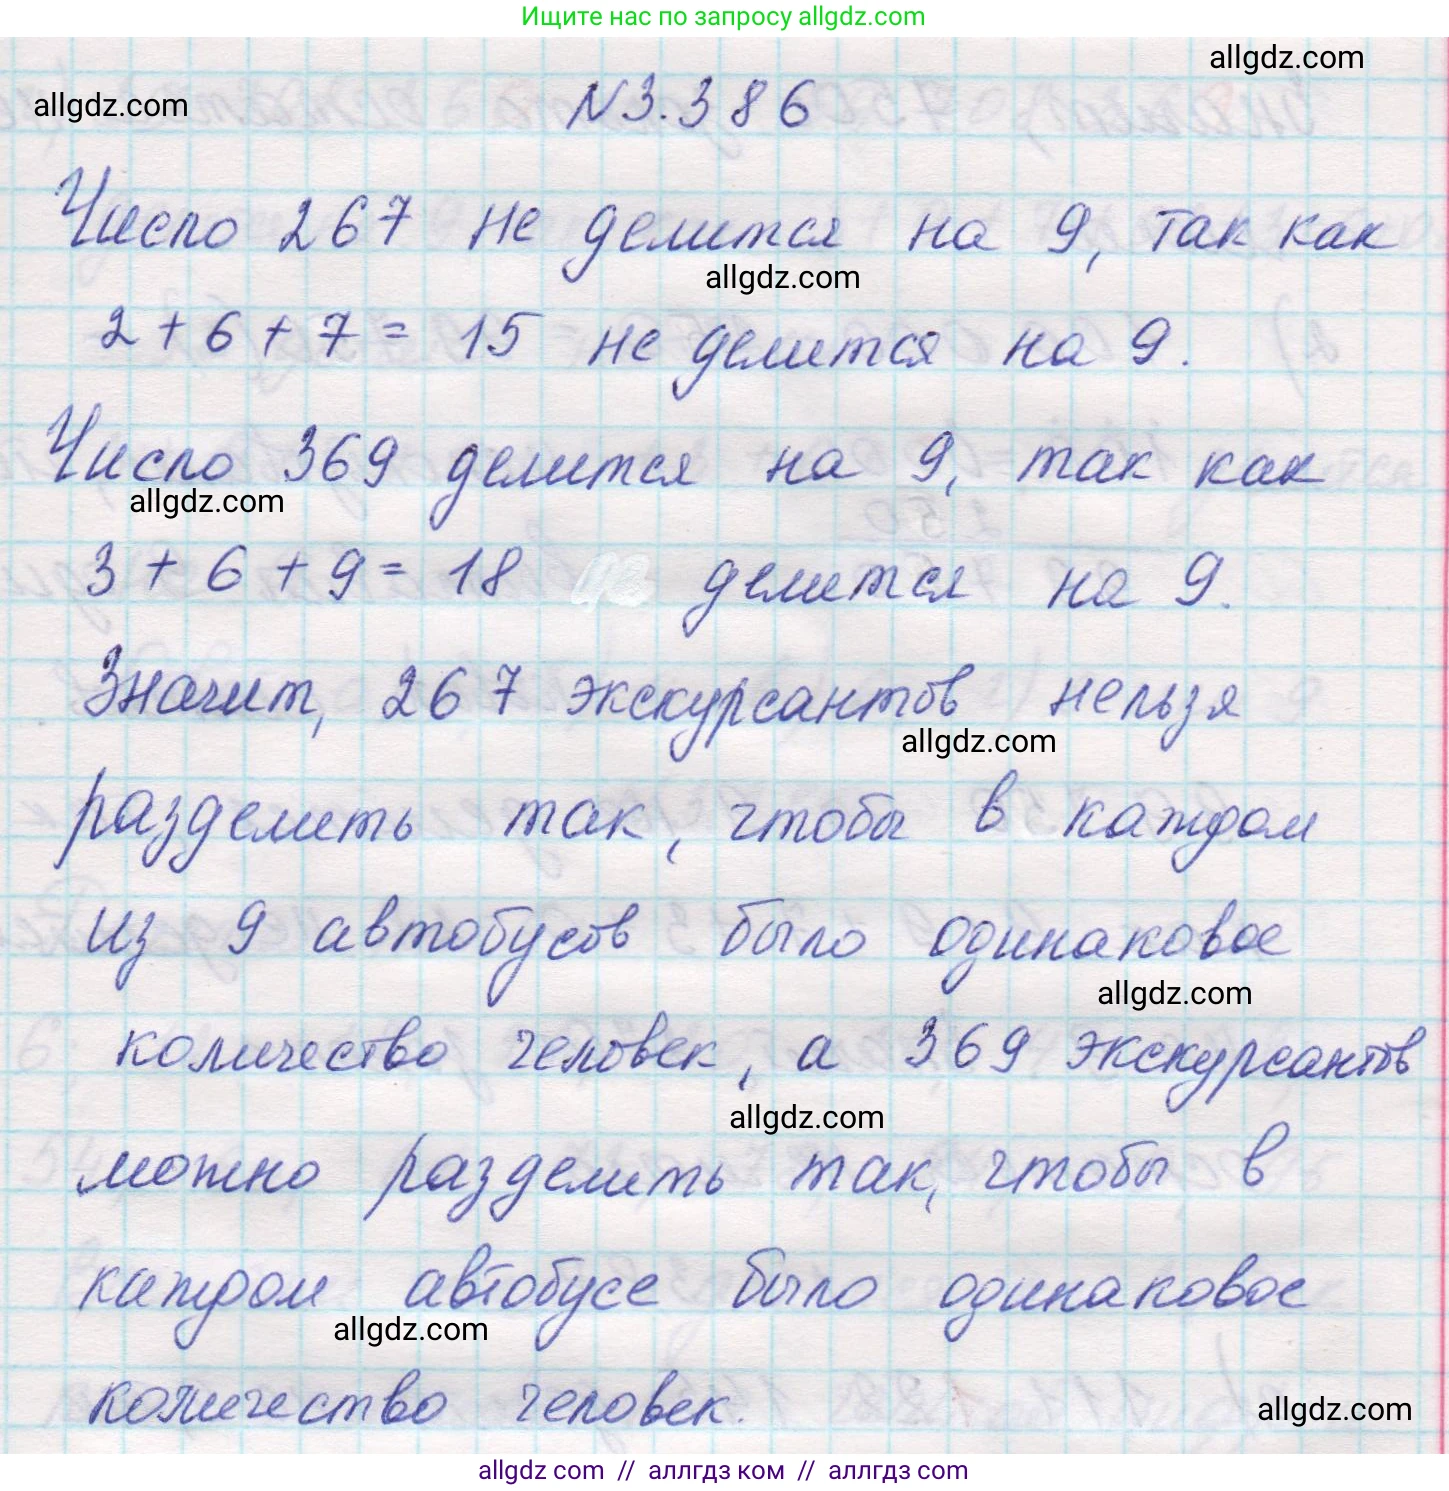 Ищите нас по запросу allgdz.com
allgdz.com
allgdz.com
N3.386
Число 267 не делится на 9, так как
allgdz.com
2+6+7= 15 не делится на 9.
Число 369 делится на 9, так как
allgdz.com
3+6+9= 18 делится на 9.
Значит, 267 экскурсантов нельзя
allgdz.com
разделить так, чтобы в каждом
из 9 автобусов было одинаковое
allgdz.com
количество человек, а 369 экскурсантов
allgdz.com
можно разделить так, чтобы в
каждом автобусе было одинаковое
allgdz.com
количество человек.
allgdz.com
allgdz com // аллгдз ком // аллгдз com